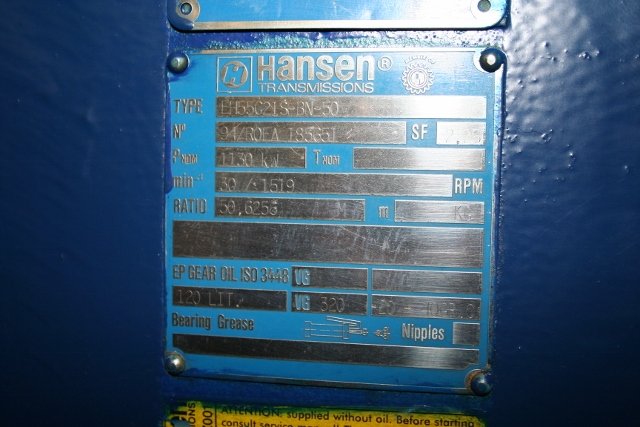 Hansen®
TRANSMISSIONS
TYPE
Nº 94/ROFA SF
PNOM 1130 kW TNOM
min⁻¹ 30 / 1519 RPM
RATIO 50,6256 m
EP GEAR OIL ISO 3448 VG
120 LIT. VG 320
Bearing Grease Nipples
ATTENTION: supplied without oil. Before starting
consult service